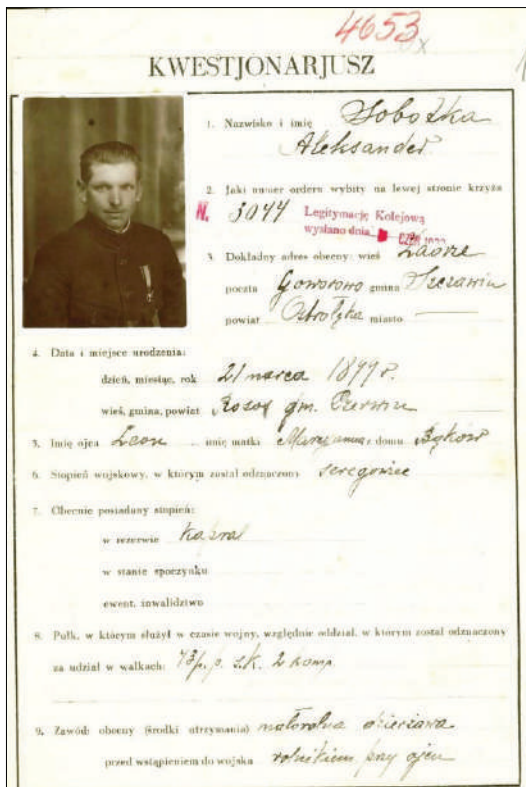 4653
KWESTJONARJUSZ
1. Nazwisko i imię Sobotka
Aleksander
2. Jaki numer orderu wybity na lewej stronie krzyża
N. 3044 Legitymację Kolejową
wysłano dnia
3. Dokładny adres obecny: wieś
poczta Goworowo gmina Szczawin
powiat Ostrołęka miasto —
4. Data i miejsce urodzenia:
dzień, miesiąc, rok 21 marca 1899 r.
wieś, gmina, powiat gm. Czerwin
5. Imię ojca Leon imię matki Marjanna z domu
6. Stopień wojskowy, w którym został odznaczony szeregowiec
7. Obecnie posiadany stopień:
w rezerwie Kapral
w stanie spoczynku
ewent. inwalidztwo
8. Pułk, w którym służył w czasie wojny, względnie oddział, w którym został odznaczony
za udział w walkach: 2 komp.
9. Zawód obecny (środki utrzymania) małorolna dzierżawa
przed wstąpieniem do wojska rolnikiem przy ojcu